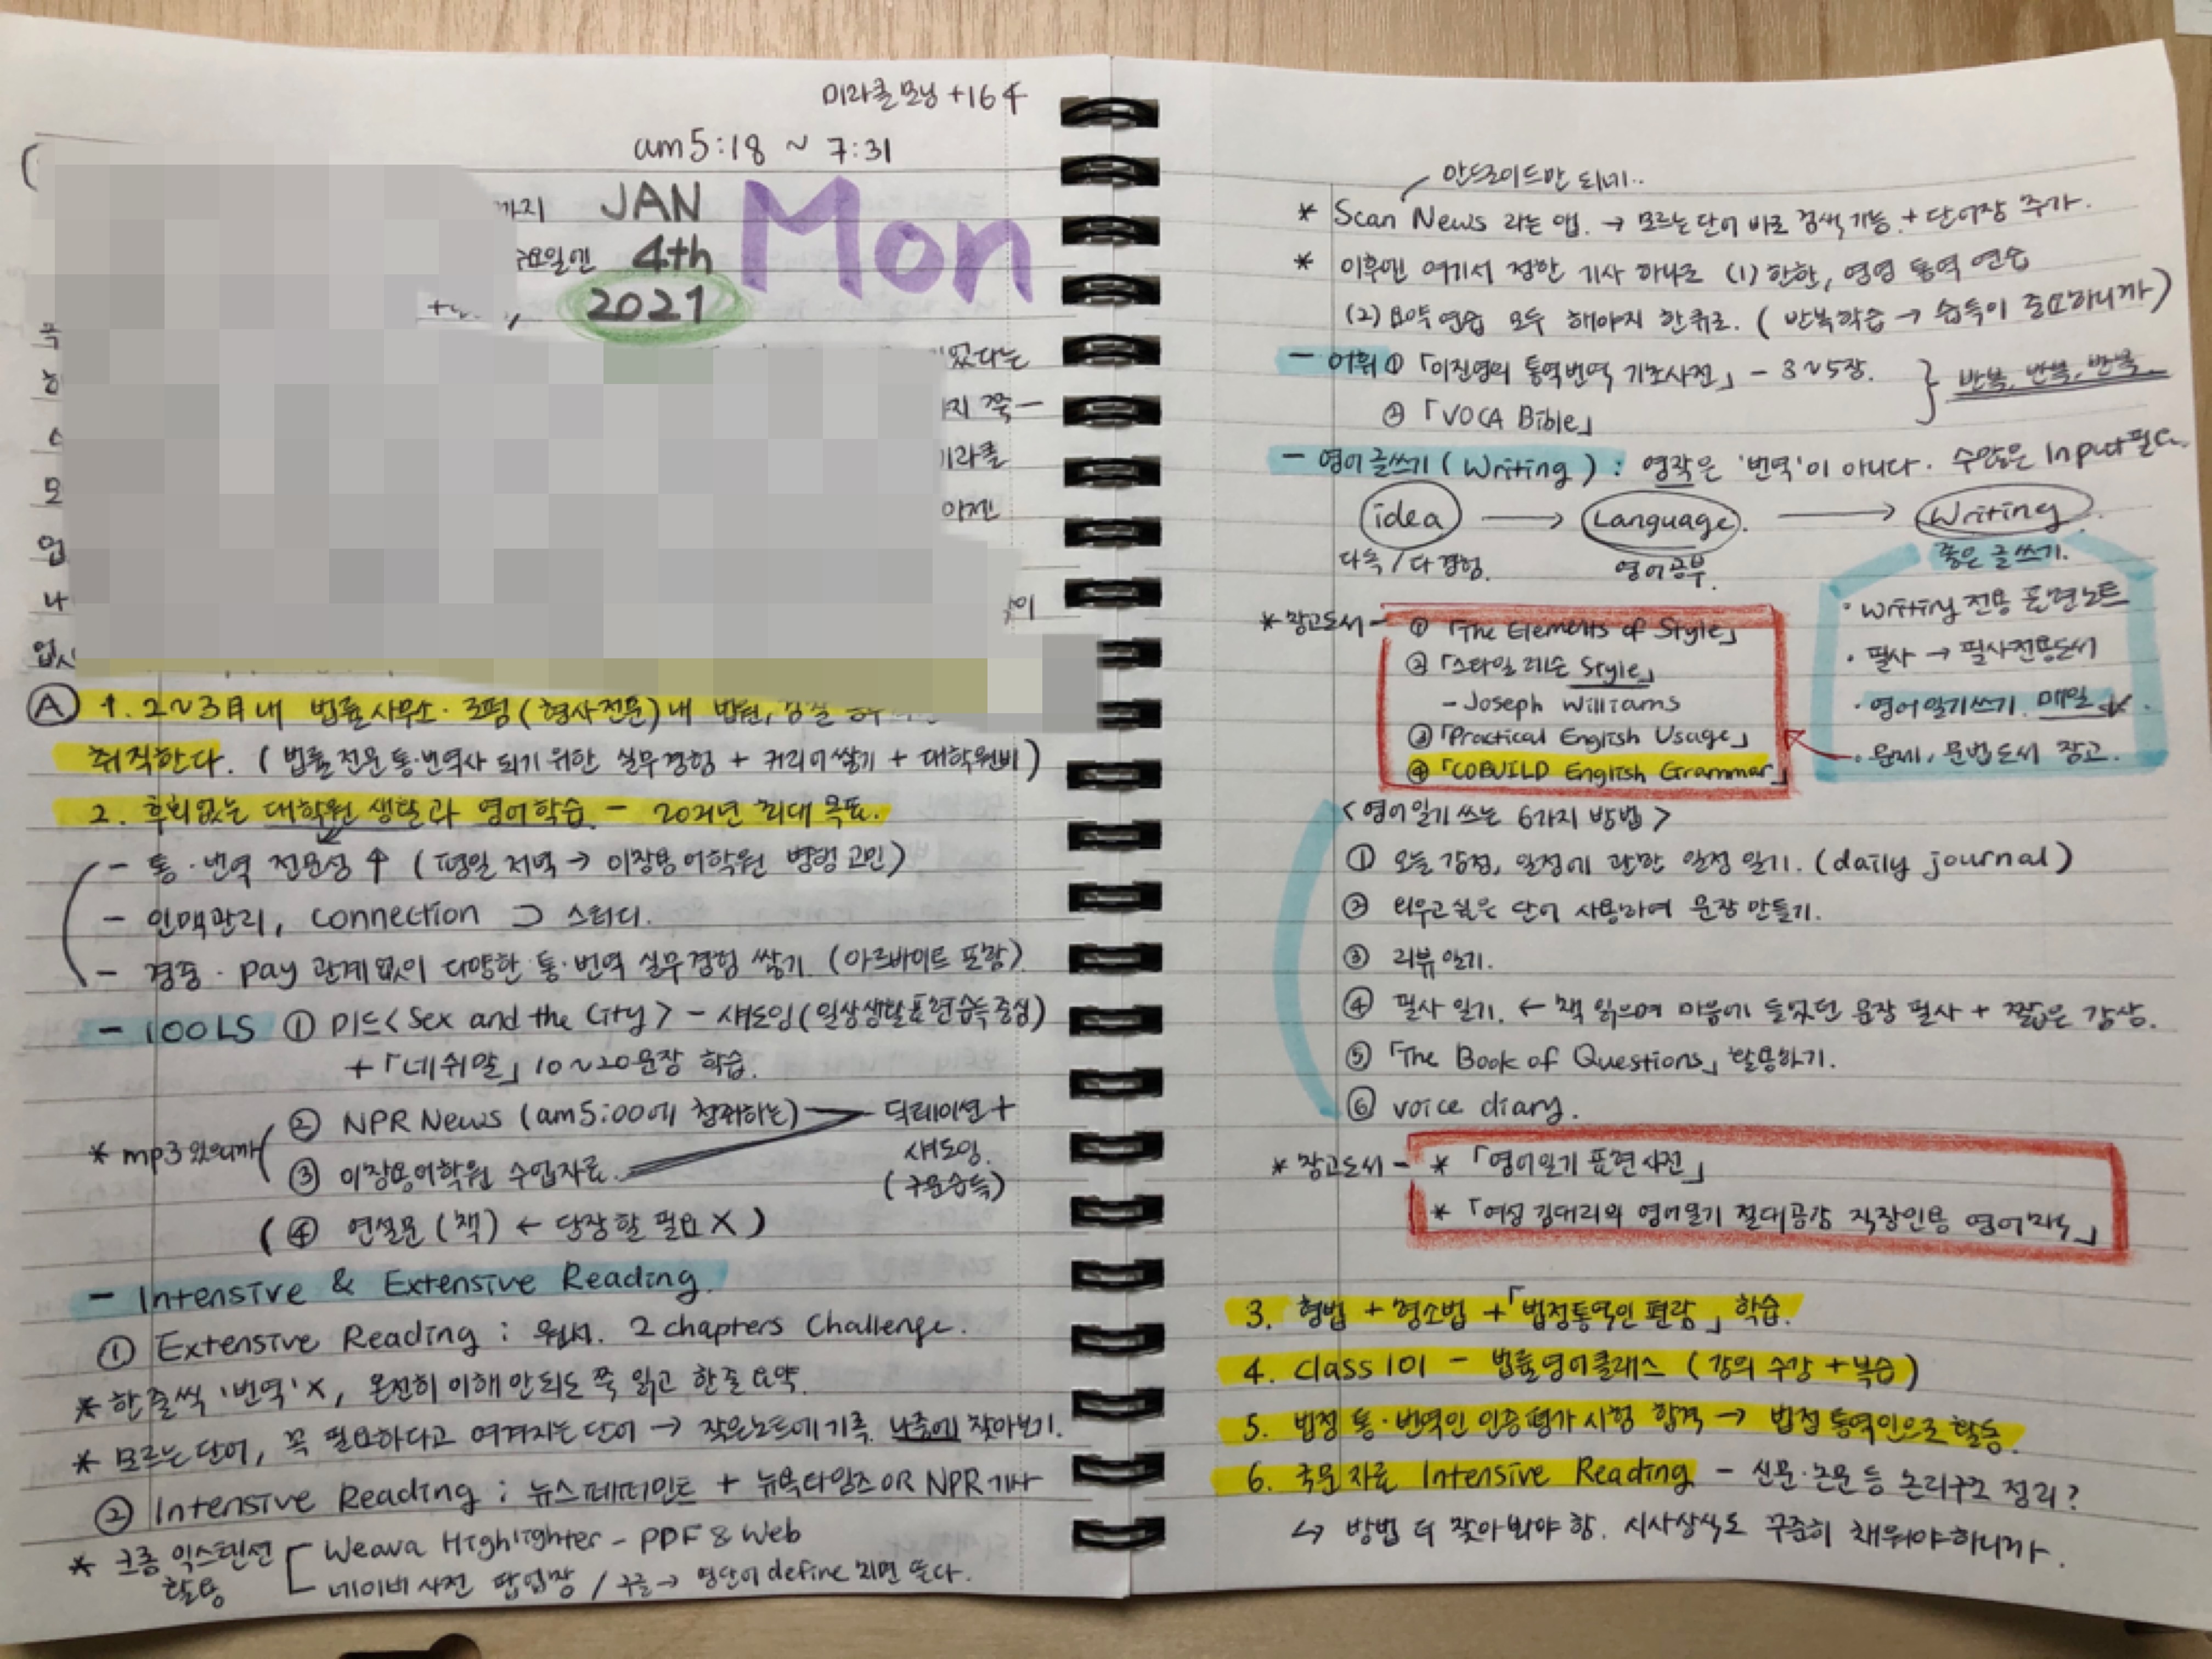 미라클모닝 +164
am5:18 ~ 7:31
까지 JAN Mon
요일엔 4th
2021
있다는
까지 쭉
미라클
Ⓐ 1. 2~3月내 법률사무소·로펌(형사전문)내 법원, 경찰
취직한다. (법률전문 통·번역사 되기 위한 실무경험 + 커리어쌓기 + 대학원비)
2. 후회없는 대학원 생활과 영어학습 - 2021년 최대 목표.
- 통·번역 전문성 ↑ (평일 저녁 → 이창용어학원 병행 고민)
- 인맥관리, connection ⊃ 스터디.
- 경중·pay 관계없이 다양한 통·번역 실무경험 쌓기. (아르바이트 포함)
- TOOLS ① 미드<Sex and the City> - 섀도잉(일상생활표현습득중심)
+「네쉬말」10~20문장 학습.
② NPR News (am5:00에 청취하는) → 딕테이션+
섀도잉.
(구문습득)
* mp3있으니까
③ 이창용어학원 수업자료.
(④ 연설문(책) ← 당장할 필요 X)
- Intensive & Extensive Reading.
① Extensive Reading : 원서. 2 chapters Challenge.
* 한줄씩 '번역'X, 온전히 이해 안되도 쭉 읽고 한줄요약.
* 모르는 단어, 꼭 필요하다고 여겨지는 단어 → 작은노트에 기록. 나중에 찾아보기.
② Intensive Reading : 뉴스페퍼민트 + 뉴욕타임즈 OR NPR 기사
* 크롬 익스텐션 활용
Weava Highlighter - PDF & Web
네이버사전 팝업창 / 구글 → 영단어 define 치면 뜬다.
안드로이드만 되네..
* Scan News 라는 앱. → 모르는 단어 바로 검색 기능. + 단어장 추가.
* 이후엔 여기서 정한 기사 하나로 (1) 한한, 영영 통역 연습
(2) 요약연습 모두 해야지 한큐로. (반복학습 → 습득이 중요하니까)
- 어휘 ①「이진영의 통역번역 기초사전」- 3~5장.
②「VOCA Bible」
반복, 반복, 반복.
- 영어 글쓰기 (Writing) : 영작은 '번역'이 아니다. 수많은 Input 필요.
idea → Language. → Writing.
다독/다경험. 영어공부. 좋은 글쓰기.
· Writing 전용 훈련노트
· 필사 → 필사전용도서
· 영어일기쓰기. 매일
· 문체, 문법도서 참고.
* 참고도서 - ①「The Elements of Style」
②「스타일 레슨 Style」
- Joseph Williams
③「Practical English Usage」
④「COBUILD English Grammar」
<영어일기 쓰는 6가지 방법>
① 오늘 감정, 일정에 관한 일정 일기. (daily journal)
② 외우고싶은 단어 사용하여 문장 만들기.
③ 리뷰일기.
④ 필사 일기. ← 책 읽으며 마음에 들었던 문장 필사 + 짧은 감상.
⑤「The Book of Questions」활용하기.
⑥ voice diary.
* 참고도서 - *「영어일기 표현사전」
*「여성 김대리의 영어일기 절대공감 직장인용 영어」
3. 형법 + 형소법 +「법정통역인 편람」학습.
4. class101 - 법률영어클래스 (강의 수강 + 복습)
5. 법정 통·번역인 인증평가시험 합격 → 법정 통역인으로 활동.
6. 국문자료 Intensive Reading - 신문·논문 등 논리구조 정리?
↳ 방법 더 찾아봐야 함. 시사상식도 꾸준히 채워야하니까.